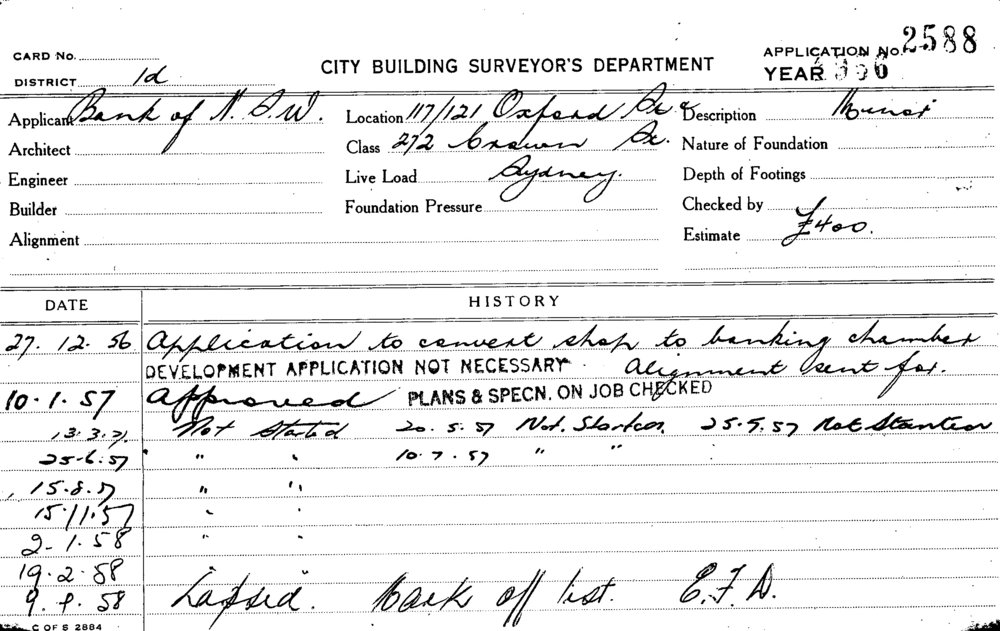 CARD No.
APPLICATION No. 2588
DISTRICT 1d
CITY BUILDING SURVEYOR'S DEPARTMENT
YEAR 956
Applicant Bank of N.S.W.
Location 117/121 Oxford St &
Description
Architect
Class 272 Crown St.
Nature of Foundation
Engineer
Live Load Sydney.
Depth of Footings
Builder
Foundation Pressure
Checked by
Alignment
Estimate £400.
DATE
HISTORY
27. 12. 56 Application to convert shop to banking chamber
DEVELOPMENT APPLICATION NOT NECESSARY Alignment sent for.
10. 1. 57 Approved PLANS & SPECN. ON JOB CHECKED
13. 3. Not Started 20. 5. 57 Not Started 25. 5. 57 Not Started
25. 6. 57 " " 10. 7. 57 " "
15. 8. 57 " "
15. 11. 57 " "
2. 1. 58 " "
19. 2. 58 "
9. 58 Lapsed. Mark off list. E.F.D.
C OF S 2884